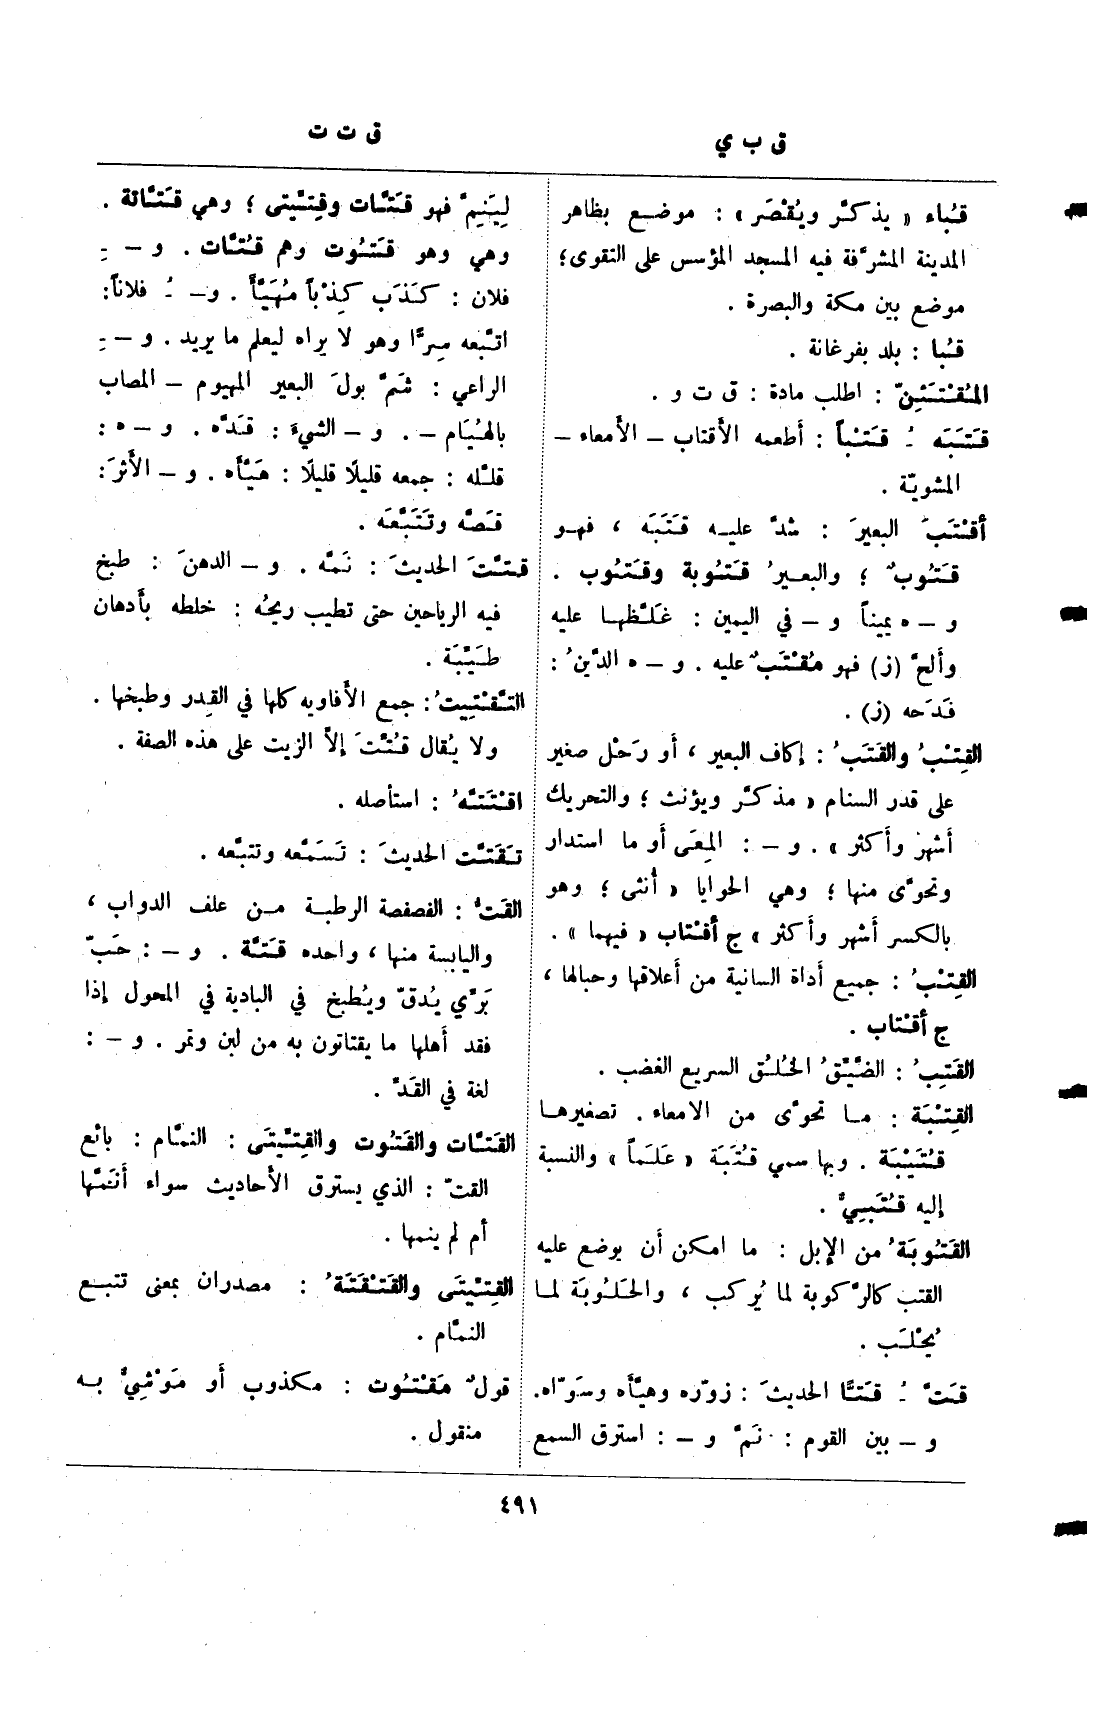 ق ب ي
ق ت ت
قُباء « يذكَّر ويُقْصَر » : موضع بظاهر
المدينة المشرَّفة فيه المسجد المؤسس على التقوى؛
موضع بين مكة والبصرة .
قُبا : بلد بفرغانة .
المُقْتَئِنّ : اطلب مادة : ق ت و .
قَتَبَه ـُ قَتْباً : أطعمه الأقتاب – الأمعاء –
المشويّة .
أقْتَبَ البعيرَ : شدَّ عليه قَتَبَه ، فهو
قَتُوبٌ ؛ والبعيرُ قَتُوبة وقَتُوب .
و – ه يميناً و – في اليمين : غَلَّظها عليه
وألحَّ (ز) فهو مُقْتَبٌ عليه . و – ه الدَّينُ :
فَدَحه (ز) .
القِتْبُ والقَتَبُ : إكاف البعير ، أو رَحْل صغير
على قدر السنام « مذكَّر ويؤنث ؛ والتحريك
أشهر وأكثر » . و – : المِعَى أو ما استدار
وتحوَّى منها ؛ وهي الحوايا « أُنثى ؛ وهو
بالكسر أشهر وأكثر » ج أقْتاب « فيهما » .
القِتْبُ : جميع أداة السانية من أعلاقها وحبالها ،
ج أقْتاب .
القَتِبُ : الضَّيِّقُ الخُلُق السريع الغضب .
القِتْبَة : ما تحوَّى من الامعاء . تصغيرها
قُتَيْبَة . وبها سمي قُتَبَة « عَلَماً » والنسبة
إليه قُتَبيٌّ .
القَتُوبَةُ من الإبل : ما امكن أن يوضع عليه
القتب كالرَّكوبة لما يُركب ، والحَلُوبَة لما
يُحْلَب .
قَتَّ ـُ قَتًّا الحديثَ : زوّره وهيَّأه وسَوّاه.
و – بين القوم : نَمَّ و – : استرق السمع
لِيَنِمَّ فهو قَتَّات وقِتِّيتى ؛ وهي قَتَّاتة .
وهي وهو قَتُوت وهم قُتَّات . و – ـِ
فلان : كَذَب كِذْباً مُهَيَّأً . و– ـُ فلاناً:
اتَّبعه سِرًّا وهو لا يراه ليعلم ما يريد . و – ـِ
الراعي : شَمَّ بولَ البعير المهيوم – المصاب
بالهُيَام – . و – الشيءَ : قَدَّه . و – ه :
قلَّله : جمعه قليلًا قليلًا : هَيَّأه . و – الأثرَ :
قَصَّه وتَتَبَّعَه .
قتَّتَ الحديثَ : نَمَّه . و – الدهنَ : طبخ
فيه الرياحين حتى تطيب ريحُه : خلطه بأدهان
طَيِّبَة .
التَّقْتِيتُ: جمع الأفاويه كلها في القِدر وطبخها .
ولا يُقال قُتِّتَ إلاَّ الزيت على هذه الصفة .
اقْتَتَّهُ : استأصله .
تَقَتَّت الحديثَ : تَسَمَّعه وتتبَّعه .
القَتُّ : الفصفصة الرطبة من علف الدواب ،
واليابسة منها ، واحده قَتَّة . و – : حَبّ
بَرِّي يُدقّ ويُطبخ في البادية في المحول إذا
فقد أهلها ما يقتاتون به من لبن وتمر . و – :
لغة في القَدّ .
القَتَّات والقَتُوت والقِتِّيتَى : النمَّام : بائع
القتّ : الذي يسترق الأحاديث سواء أنَمَّها
أم لم ينمها .
القِتِّيتَى والقَتْقَتَةُ : مصدران بمعنى تتبع
النمَّام .
قولٌ مَقْتُوت : مكذوب أو مَوْشِيٌّ به
منقول .
٤٩١